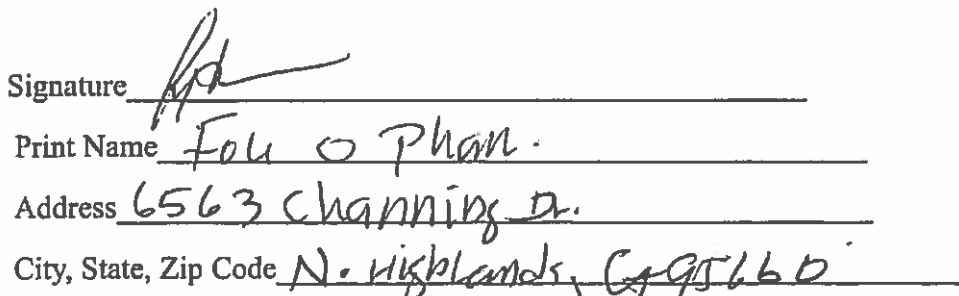 Signature
Print Name Fou O Phan.
Address 6563 Channing Dr.
City, State, Zip Code N. Highlands, CA 95660